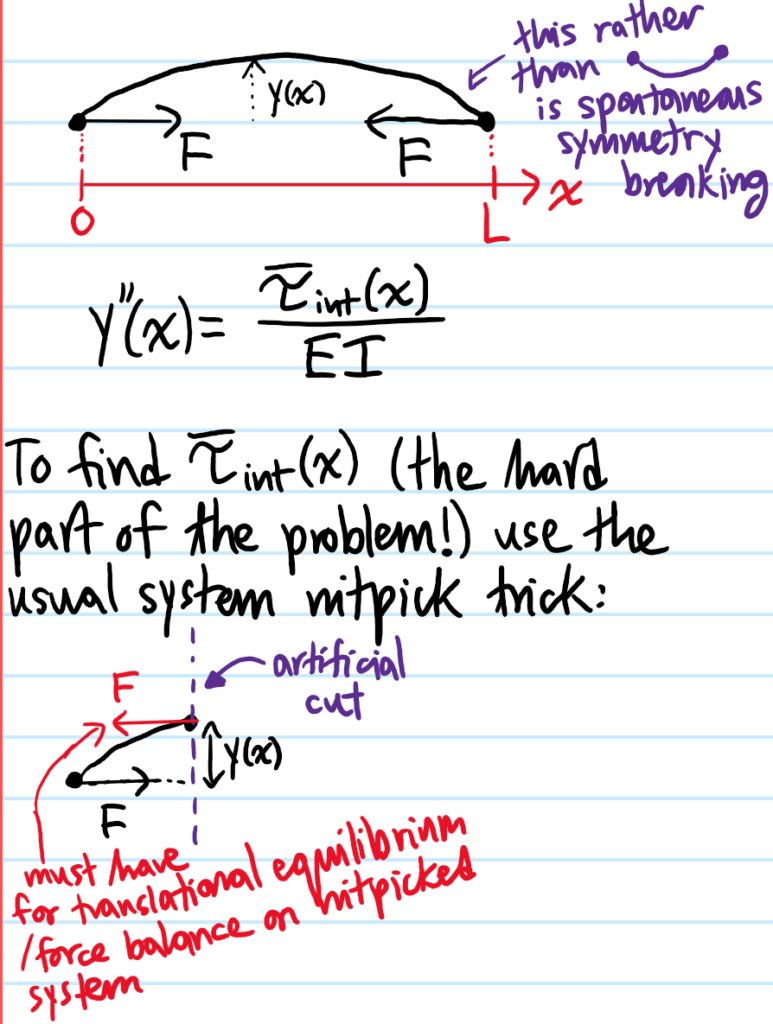 this rather
than
is spontaneous
symmetry
breaking
y(x)
F
F
0
L
x
y''(x) = τ̄int(x)
EI
To find τ̄int(x) (the hard
part of the problem!) use the
usual system nitpick trick:
artificial
cut
F
y(x)
F
must have
for translational equilibrium
/force balance on nitpicked
system